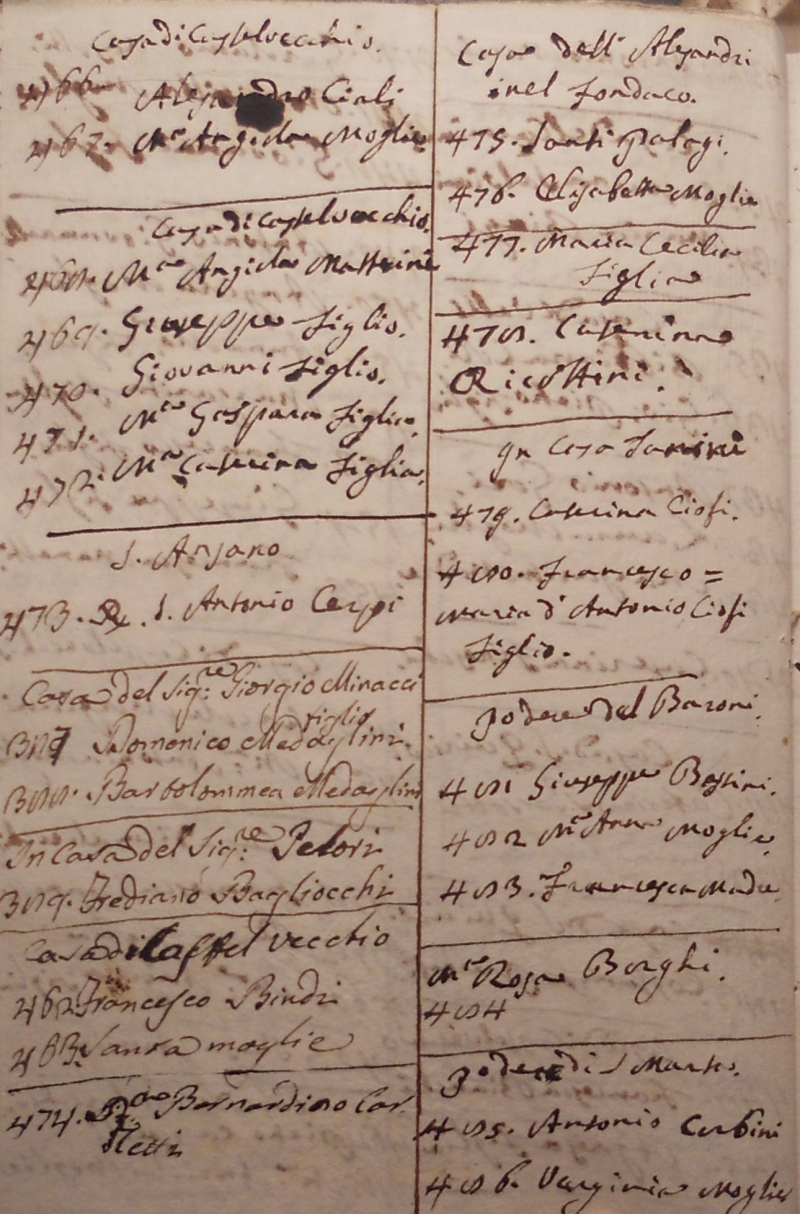 Casa di Castelvecchio.
466. Alessandro Ciali
467. Mª Angiola Moglie
Casa di Castelvecchio.
468. Mª Angiola Masserini
469. Giuseppe figlio.
470. Giovanni figlio.
471. Mª Gaspara figlia.
472. Mª Caterina figlia.
S. Ansano
473. S. Antonio Cerpi
Casa del Sig:re Giorgio Minacci
387 Domenico Medaglini figlio
388. Bartolommea Medaglini
In Casa del Sig:re Petori
389. Frediano Bagliocchi
Casa di Castel vecchio
462 Francesco Bindi
463. Laura moglie
474. Bernardino Car
Casa dell' Alessandri
nel fondaco.
475. Santi Palagi.
476. Elisabetta Moglie
477. Maria Cecilia
figlia
478. Caterina
Ricottini.
In Casa Sanini
479. Caterina Ciofi.
480. Francesco =
Maria d' Antonio Ciofi
figlio.
Podere del Baroni.
481 Giuseppe Bessini.
482 Mª Anna Moglie.
483. Francesca Madre
Mª Rosa Borghi.
484
Podere di S Marto.
485. Antonio Corbini
486. Verginia Moglie